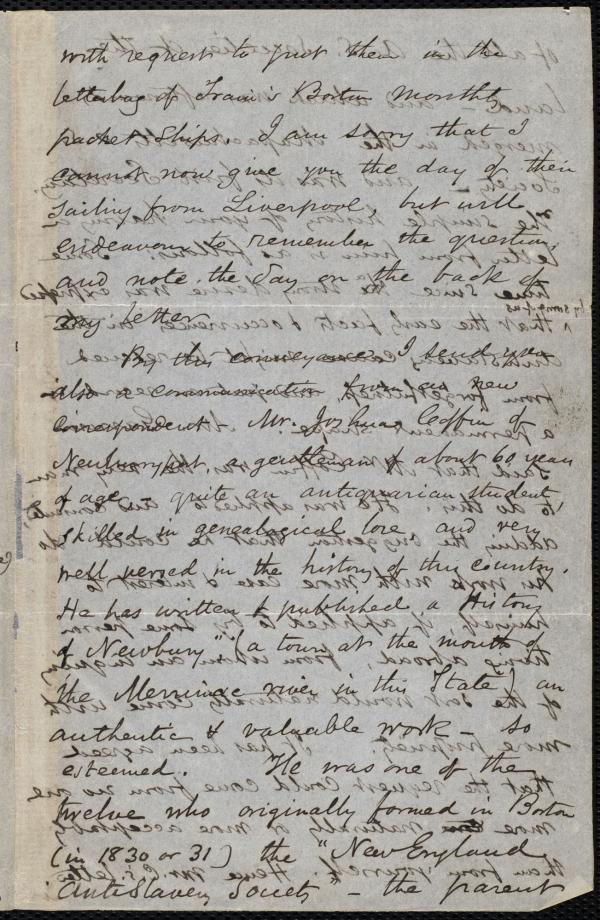 with request to put them in the
letterbag of Train's Boston Monthly
packet ships. I am sorry that I
cannot now give you the day of their
sailing from Liverpool, but will
endeavour to remember the question,
and note the day on the back of
my letter.
By this conveyance I send you
also a communication from a new
correspondent, Mr. Joshua Coffin of
Newburyport, a gentleman of about 60 years
of age, quite an antiquarian student,
skilled in genealogical lore and very
well versed in the history of this country.
He has written & published a History
of Newbury" (a town at the mouth of
the Merrimac river in this State) an
authentic & valuable work – so
esteemed. He was one of the
twelve who originally formed in Boston
(in 1830 or 31) the "New England
AntiSlavery Society" – the parent